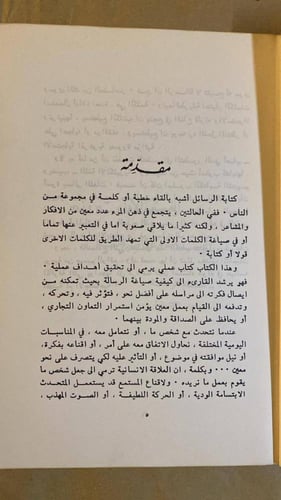 مقدّمة
كتابة الرسائل أشبه بالقاء خطبة أو كلمة في مجموعة من
الناس . ففي الحالتين ، يتجمع في ذهن المرء عدد معين من الافكار
والمشاعر ، ولكنه كثيرًا ما يلاقي صعوبة اما في التعبير عنها تماما
أو في صياغة الكلمات الاولى التي تمهد الطريق للكلمات الاخرى
قولا أو كتابة .
وهذا الكتاب كتاب عملي يرمي الى تحقيق أهداف عملية .
فهو يرشد القارىء الى كيفية صياغة الرسالة بحيث تمكنه من
ايصال فكرته الى مراسله على أفضل نحو ، فتؤثر فيه ، وتحركه ،
وتدفعه الى القيام بعمل معين يؤمن استمرار التعاون التجاري ،
أو يحافظ على الصداقة والمودة بينهما .
عندما نتحدث مع شخص ما ، أو نتعامل معه ، في المناسبات
اليومية المختلفة ، نحاول الاتفاق معه على أمر ، أو اقناعه بفكرة،
أو نيل موافقته في موضوع ، أو التأثير عليه لكي يتصرف على نحو
معين ٠٠٠ وبكلمة ، ان العلاقة الانسانية ترمي الى جعل شخص ما
يقوم بعمل ما نريده . ولاقناع المستمع قد يستعمل المتحدث
الابتسامة الودية ، أو الحركة اللطيفة ، أو الصوت المهذب ،
٥